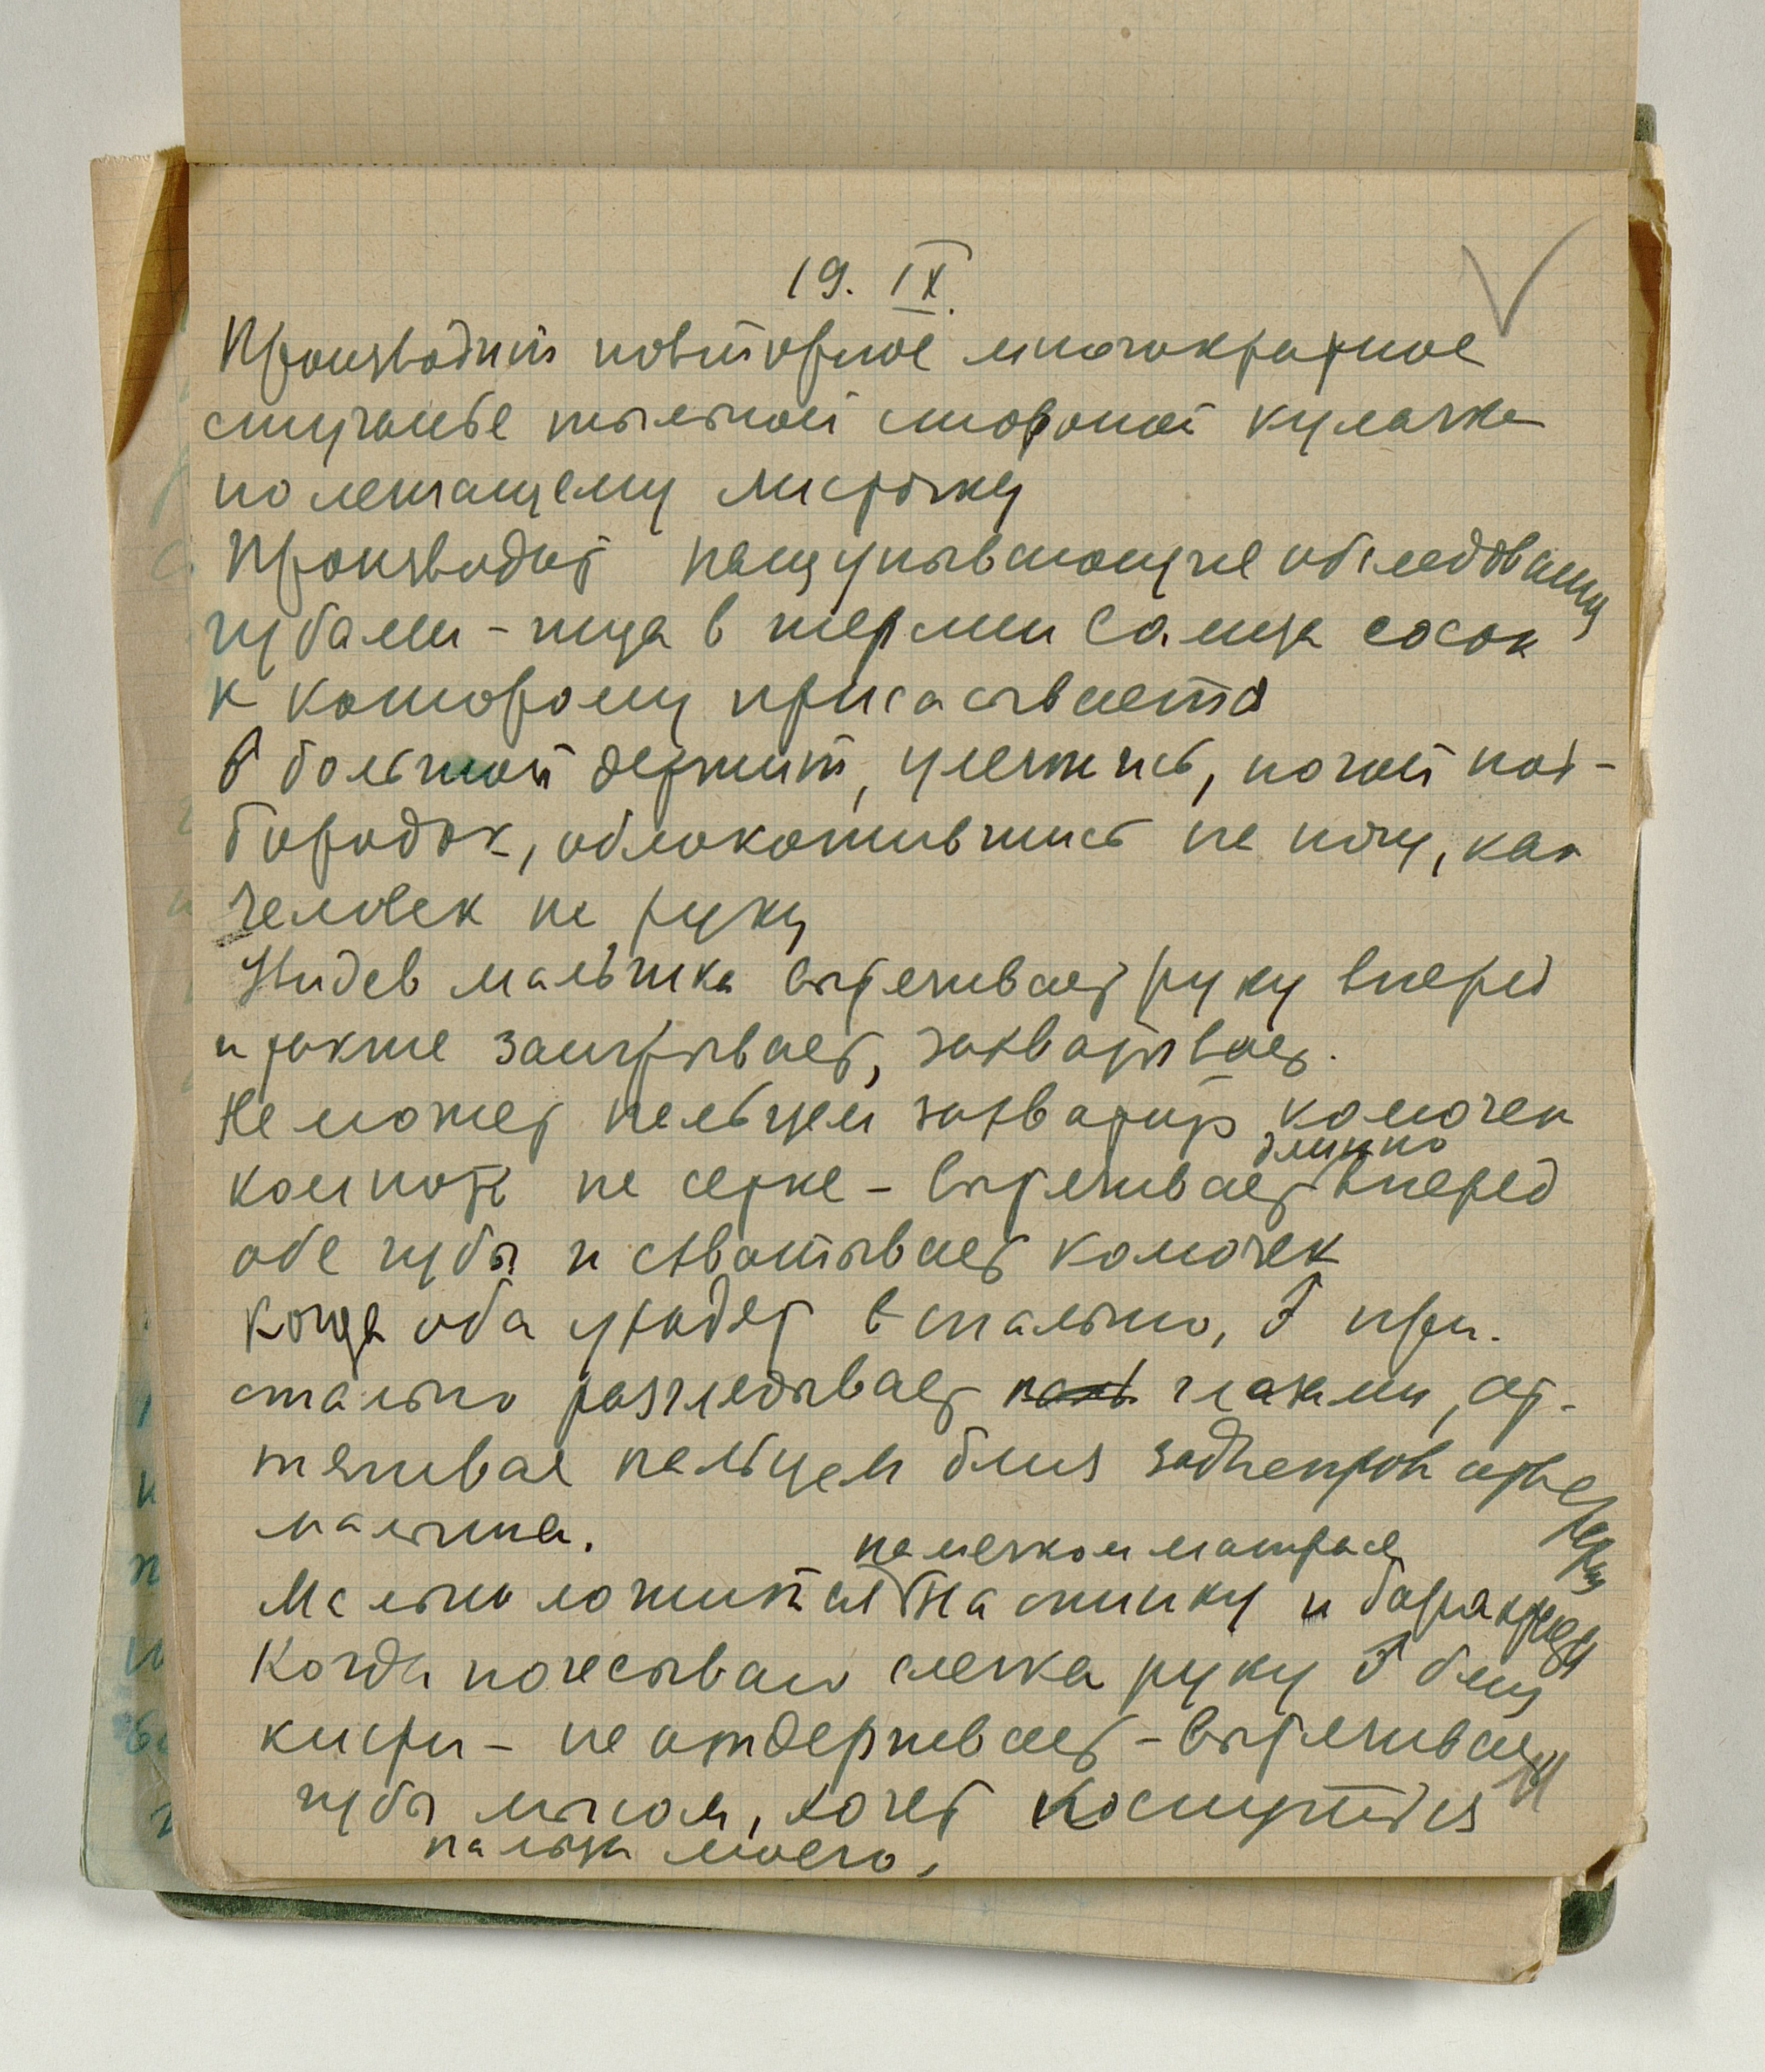 19. IX.
Производит повторное многократное
стучанье тыльной стороной кулачка
по лежащему листочку
Производит нащупывающие обследования
губами – ища в шерсти самца сосок
к которому присасывается
♂ большой держит, улегшись, ногой под-
бородок, облокотившись на ногу, как
человек на руку
Увидев малыша вытягивает руку вперед
и также заигрывает, захватывает.
Не может пальцем захватить комочек
компота на сетке – вытягивает длинно вперед
обе губы и схватывает комочек
Когда оба уходят в спальню, ♂ при-
стально разглядывает глазами, от-
тягивая пальцем близ заднепрох отверстия
малыша.
на мягком матрасе
Малыш ложится на спинку и
Когда почесываю слегка руку ♂ близ
кисти – не отдергивает – вытягивает
губы мысом, хочет коснуться
пальца моего.